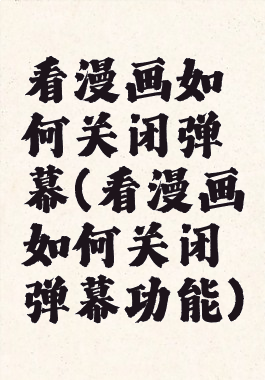 看漫画如
何关闭弹
幕(看漫画
如何关闭
弹幕功能)